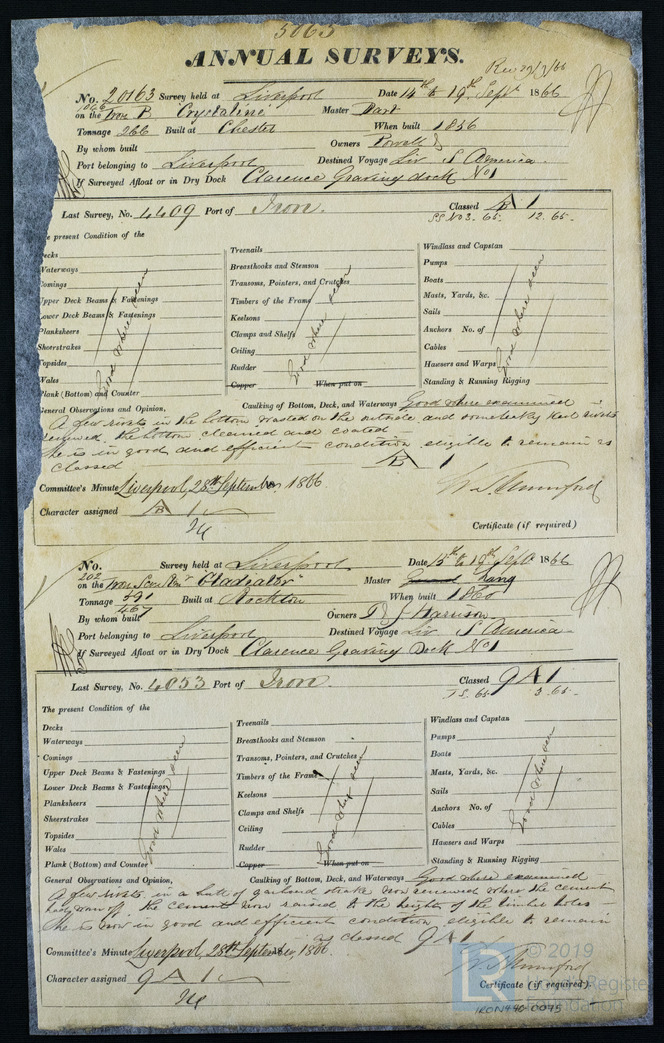 5065
ANNUAL SURVEYS.
Rec 29/9/66
No. 20163 Survey held at Liverpool Date 14th to 19th Sept 1866
1066
on the Iron B "Crystaline" Master Dart
Tonnage 266 Built at Chester When built 1856
By whom built Owners Powell &
Port belonging to Liverpool Destined Voyage Liv S America
If Surveyed Afloat or in Dry Dock Clarence Graving dock No 1
Last Survey, No. 4409 Port of Iron. Classed B 1
SS No 3. 65. 12. 65.
e present Condition of the
Decks
Waterways
Comings
Upper Deck Beams & Fastenings
Lower Deck Beams & Fastenings
Planksheers
Sheerstrakes
Topsides
Wales
Plank (Bottom) and Counter
Good where seen
Treenails
Breasthooks and Stemson
Transoms, Pointers, and Crutches
Timbers of the Frame
Keelsons
Clamps and Shelfs
Ceiling
Rudder
Copper When put on
Good where seen
Windlass and Capstan
Pumps
Boats
Masts, Yards, &c.
Sails
Anchors No. of
Cables
Hawsers and Warps
Standing & Running Rigging
Good where seen
General Observations and Opinion, Caulking of Bottom, Deck, and Waterways Good where examined
A few rivets in the bottom wasted on the outside and some leaky keel rivets
renewed. the bottom cleaned and coated
She is in good and efficient condition eligible to remain as
classed B 1
Committee's Minute Liverpool, 28th September 1866.
Character assigned A 1
Certificate (if required)
No. Survey held at Liverpool Date 15th to 19th Sept 1866
202
on the Iron Scw Str "Gladiator" Master Lang
Tonnage 591 Built at Stockton When built 1860
467
By whom built Owners T & J Harrison
Port belonging to Liverpool Destined Voyage Liv S America
If Surveyed Afloat or in Dry Dock Clarence Graving Dock No 1
Last Survey, No. 4053 Port of Iron. Classed 9 A 1
TS. 65 3. 65.
The present Condition of the
Decks
Waterways
Comings
Upper Deck Beams & Fastenings
Lower Deck Beams & Fastenings
Planksheers
Sheerstrakes
Topsides
Wales
Plank (Bottom) and Counter
Good where seen
Treenails
Breasthooks and Stemson
Transoms, Pointers, and Crutches
Timbers of the Frame
Keelsons
Clamps and Shelfs
Ceiling
Rudder
Copper When put on
Good where seen
Windlass and Capstan
Pumps
Boats
Masts, Yards, &c.
Sails
Anchors No. of
Cables
Hawsers and Warps
Standing & Running Rigging
Good where seen
General Observations and Opinion, Caulking of Bottom, Deck, and Waterways Good where examined
A few rivets in a butt of garboard strake now renewed where the cement
had worn off, the cement now raised to the heights of the limber holes
She is now in good and efficient condition eligible to remain
as classed 9 A 1
Committee's Minute Liverpool, 28th September, 1866
Character assigned 9 A 1
Certificate (if required)
© 2019
LR Lloyd's Register
Foundation
IRON440-0045